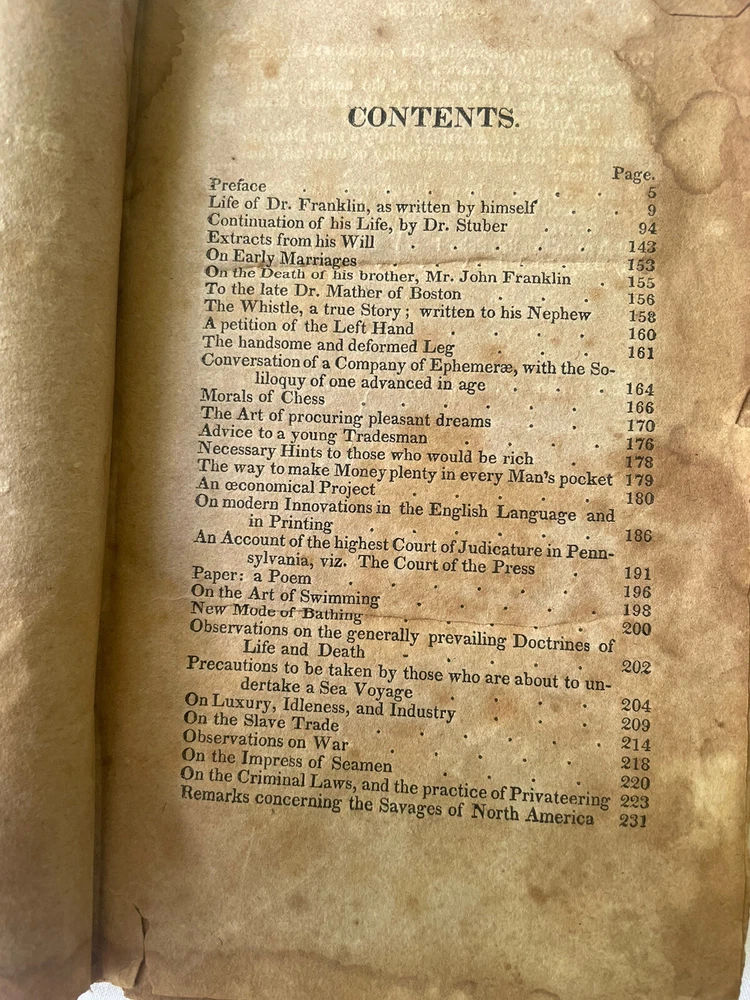 CONTENTS.
Page.
Preface . . . . . . . . 5
Life of Dr. Franklin, as written by himself . . 9
Continuation of his Life, by Dr. Stuber . . 94
Extracts from his Will . . . . . 143
On Early Marriages . . . . . 153
On the Death of his brother, Mr. John Franklin . 155
To the late Dr. Mather of Boston . . . 156
The Whistle, a true Story; written to his Nephew 158
A petition of the Left Hand . . . . 160
The handsome and deformed Leg . . . 161
Conversation of a Company of Ephemeræ, with the So-
liloquy of one advanced in age . . . 164
Morals of Chess . . . . . . 166
The Art of procuring pleasant dreams . . 170
Advice to a young Tradesman . . . . 176
Necessary Hints to those who would be rich . 178
The way to make Money plenty in every Man's pocket 179
An œconomical Project . . . . . 180
On modern Innovations in the English Language and
in Printing . . . . . . 186
An Account of the highest Court of Judicature in Penn-
sylvania, viz. The Court of the Press . 191
Paper: a Poem . . . . . . 196
On the Art of Swimming . . . . 198
New Mode of Bathing . . . . . 200
Observations on the generally prevailing Doctrines of
Life and Death . . . . . 202
Precautions to be taken by those who are about to un-
dertake a Sea Voyage . . . . 204
On Luxury, Idleness, and Industry . . . 209
On the Slave Trade . . . . . . 214
Observations on War . . . . . 218
On the Impress of Seamen . . . . 220
On the Criminal Laws, and the practice of Privateering 223
Remarks concerning the Savages of North America 231